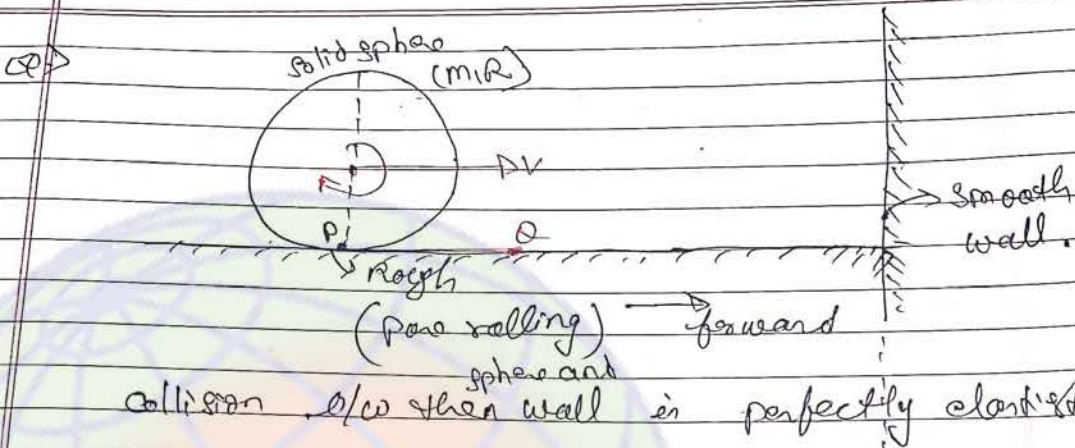 Q>
solid sphere
(M,R)
V
P
Q
Rough
smooth
wall.
(Pure rolling) → forward
sphere and
collision b/w then wall is perfectly elastic